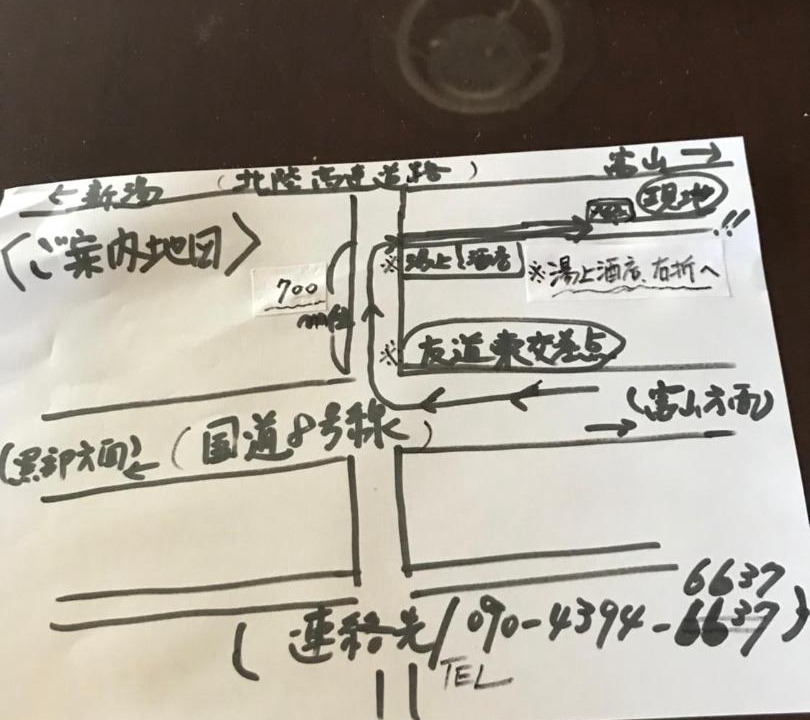 ←新潟 (北陸高速道路) 富山→
〈ご案内地図〉
現地!!
※湯上酒店
※湯上酒店、右折へ
700
m位
※友道東交差点
(富山方面)
→
(国道8号線)
(黒部方面)←
6637
(連絡先/090-4394-6637)
TEL